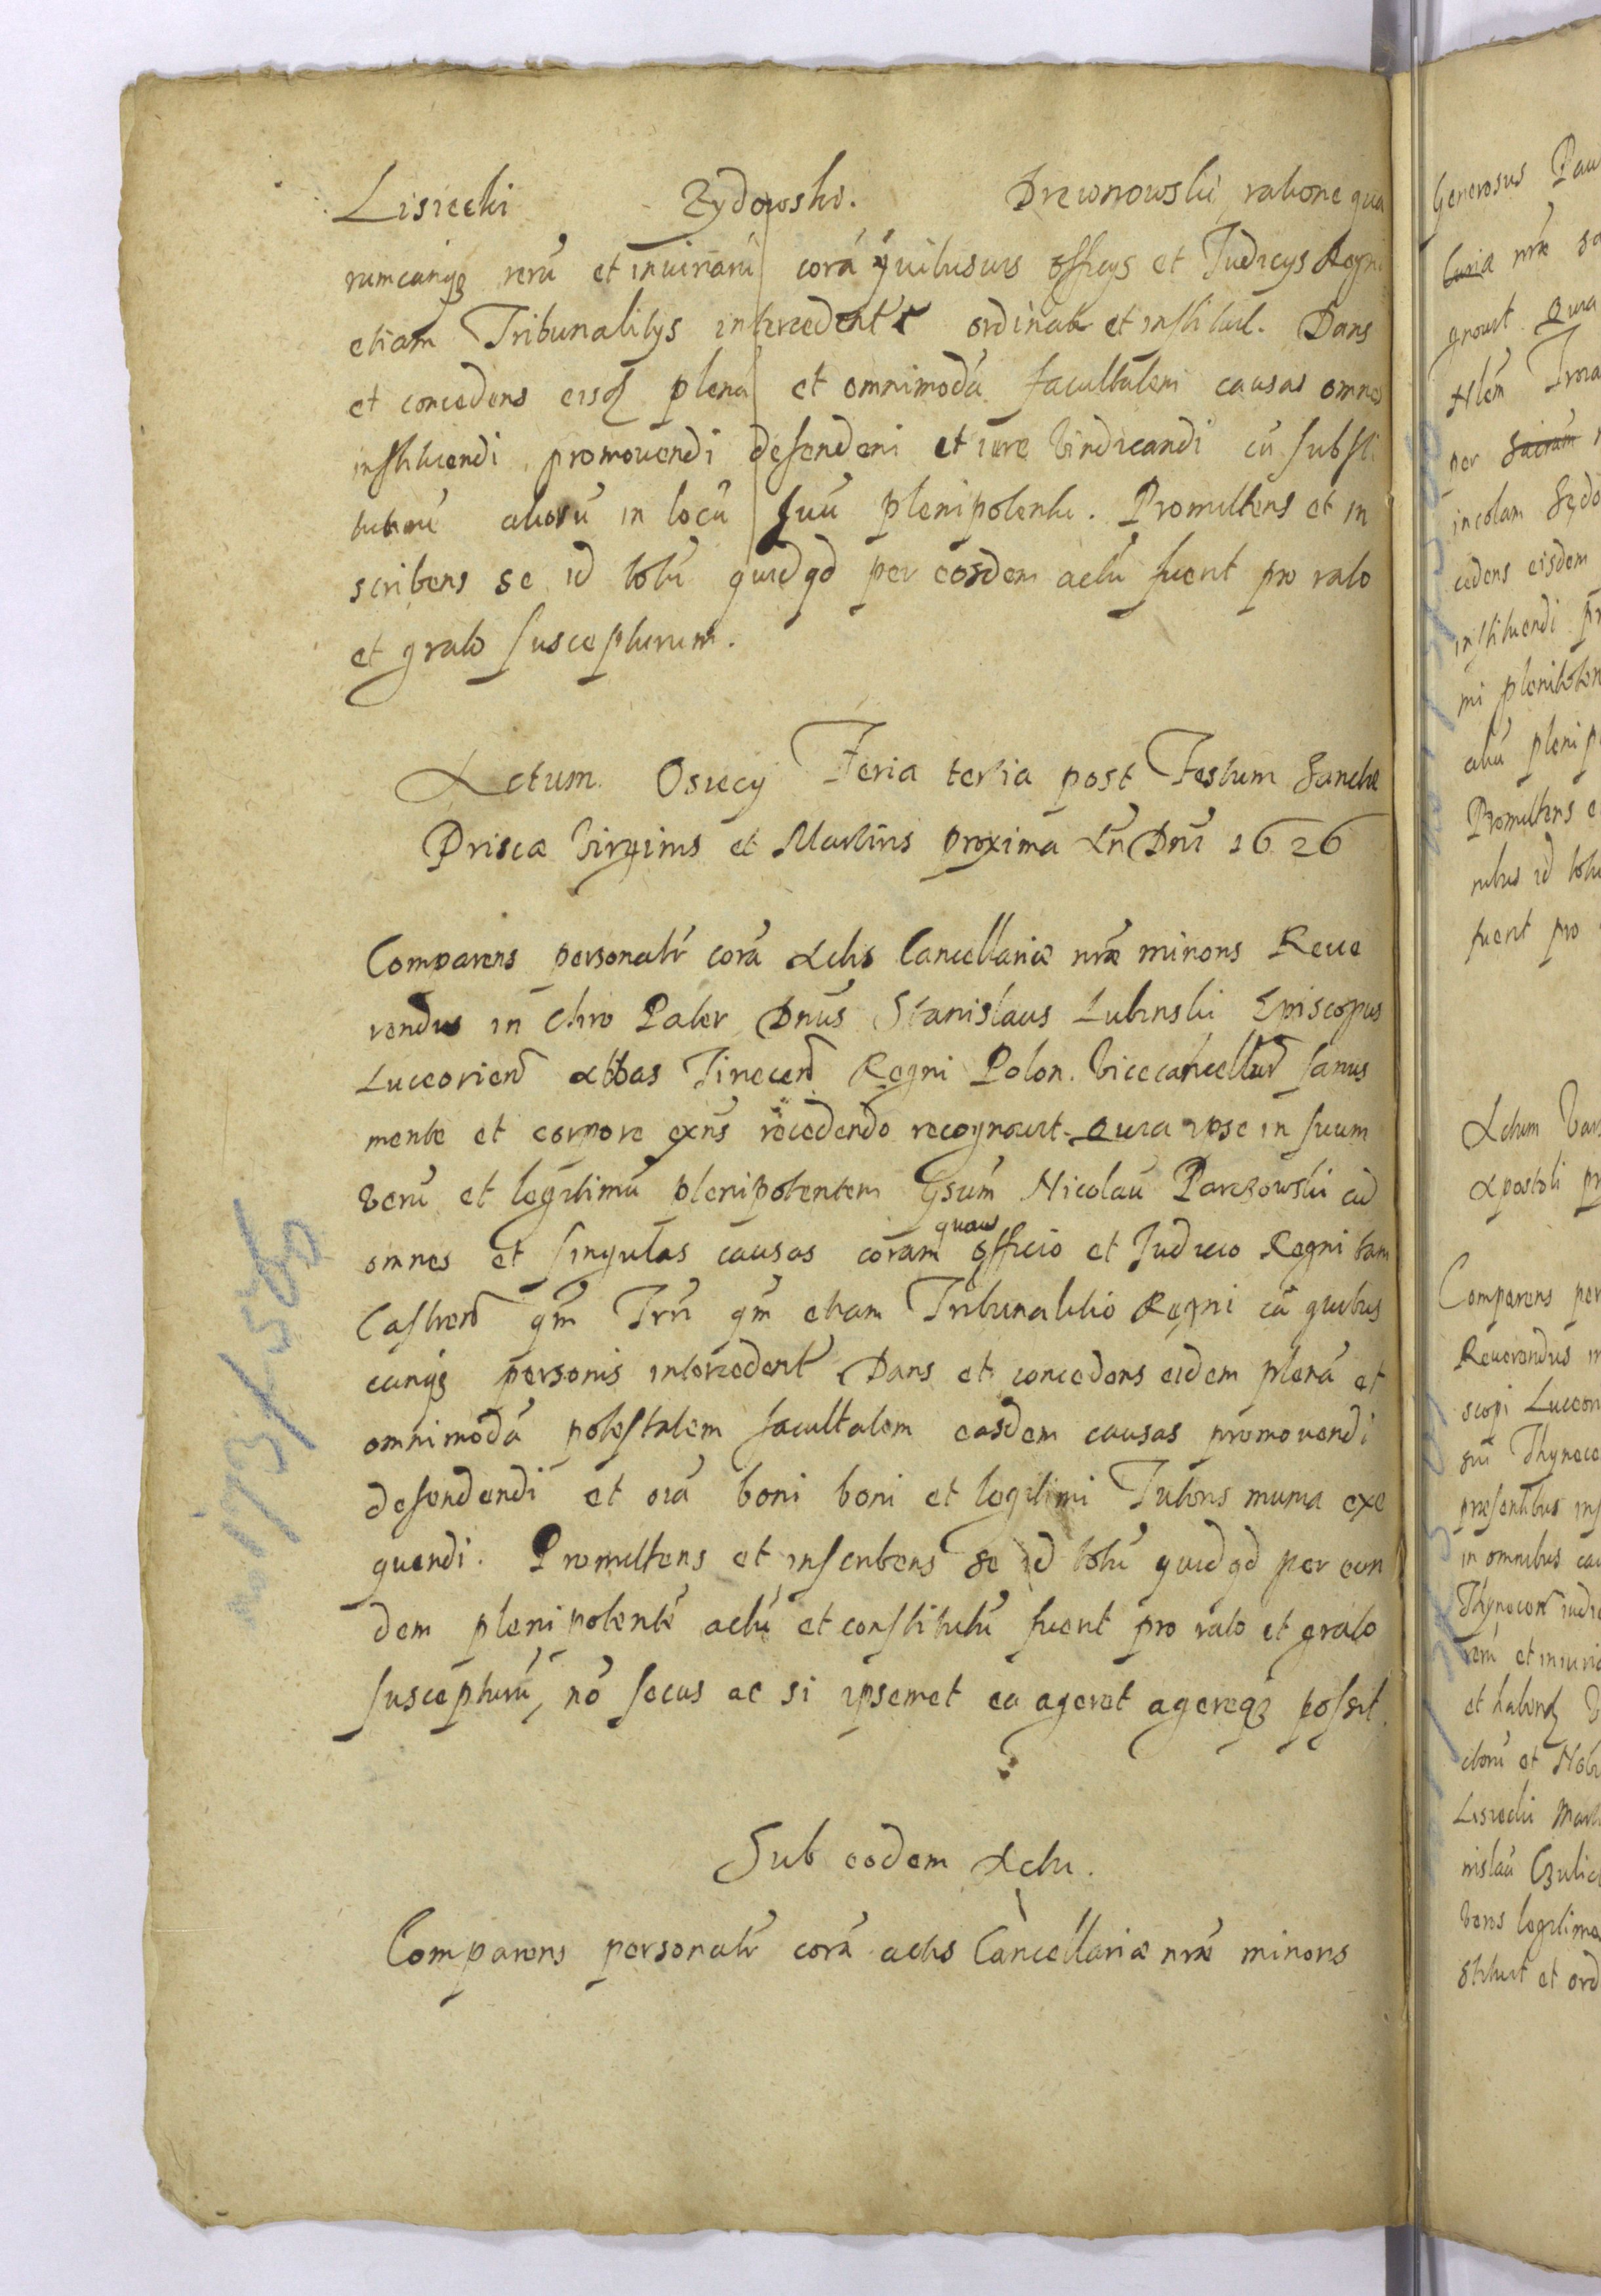 Lisiecki Zydowski. Drewnowski, ratione qua
rumcunqz rerũ et iniuriarũ corã quibusuis officys et Judicys Regni
etiam Tribunalitys intercedent. ordinat et instituit. Dans
et concedens eisd plenã et omnimodã facultatem causas omnes
instituendi promouendi defendeni et iure vindicandi cũ substi
tutione aliorũ in locũ suũ plenipotentu. Promittens et in
scribens se id totũ quidqd per eosdem actũ fuerit pro rato
et grato suscepturum.
Actum Osiecy Feria tertia post Festum Sanctæ
Priscæ Virginis et Martiris proxima An Dni 1626
Comparens personalr corã Actis Cancellariæ nrae minoris Reue
rendus in Chro Pater Dnus Stanislaus Lubinski Episcopus
Luceorien Abbas Tinecen Regni Polon. Vicecancellar sanus
mente et corpore exns recedendo recognouit. Quia ipse in suum
verũ et legitimũ plenipotentem Gsum Nicolaũ Parczowski ad
omnes et singulas causas coram quouis officio et Judicio Regni tam
Castren qm Trri qm etiam Tribunalitio Regni cũ quibus
cunqz personis intercedent. Dans et concedens eidem plenã et
omnimodã potestatem facultatem easdem causas promouendi
defendendi et oia boni boni et legitimi Tutoris munia exe
quendi. Promittens et inscribens se id totũ quidqd per eun
dem plenipotentẽ actũ et constitutũ fuerit pro rato et grato
suscepturũ, nõ secus ac si ipsemet ea ageret agereqz possit.
Sub eodem Actu.
Comparens personalr corã actis Cancellariæ nrae minoris
Generosus Pau
Curia nrae
gnouit Quia
per Sacram
incolam
cedens eisdem
instituendi pr
mi plenipoten
aliũ plenip
Promittens e
rubus id totu
fuerit pro
Actum Var
Apostoli pr
Comparens per
Reuerendus in
scopi Luceor
sui Thynece
præsentibus ins
in omnibus cau
Thynecen iudic
rerũ et iniuria
et habend
Lisiecki Mart
nislaũ
veros legitimo
stituit et ord